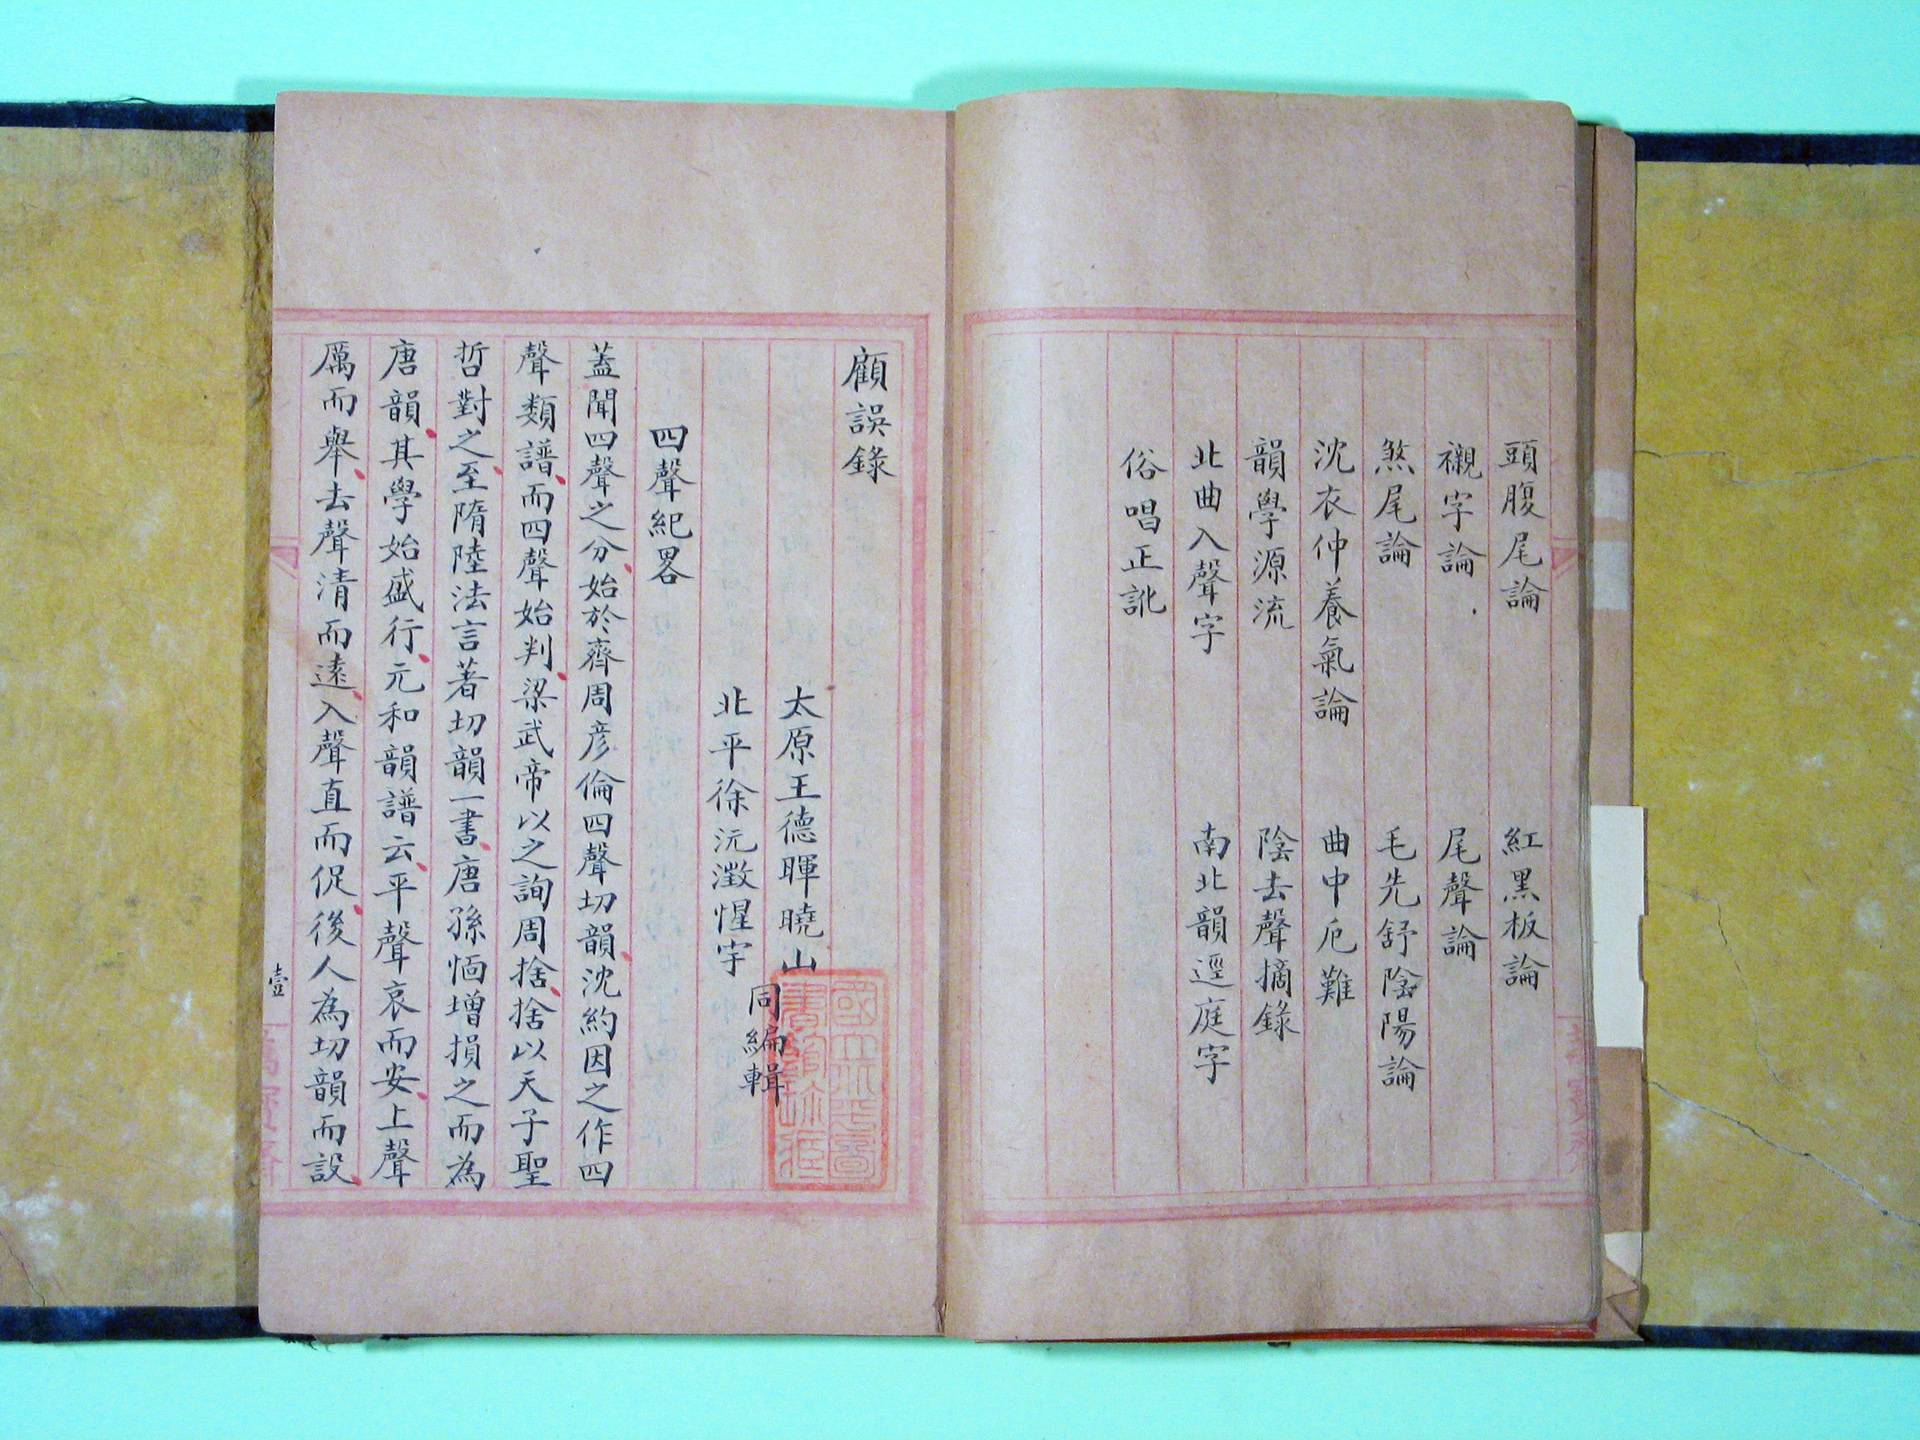 頭腹尾論 紅黑板論
襯字論 尾聲論
煞尾論 毛先舒陰陽論
沈衣仲養氣論 曲中厄難
韻學源流 陰去聲摘錄
北曲入聲字 南北韻逕庭字
俗唱正訛
顧誤錄
太原王德暉曉山
北平徐沅澂惺宇
同編輯
四聲紀畧
蓋聞四聲之分始於齊周彦倫四聲切韻沈約因之作四
聲類譜而四聲始判梁武帝以之詢周捨捨以天子聖
哲對之至隋陸法言著切韻一書唐孫愐增損之而為
唐韻其學始盛行元和韻譜云平聲哀而安上聲
厲而舉去聲清而遠入聲直而促後人為切韻而設
壹
國立北平圖
書館珍藏